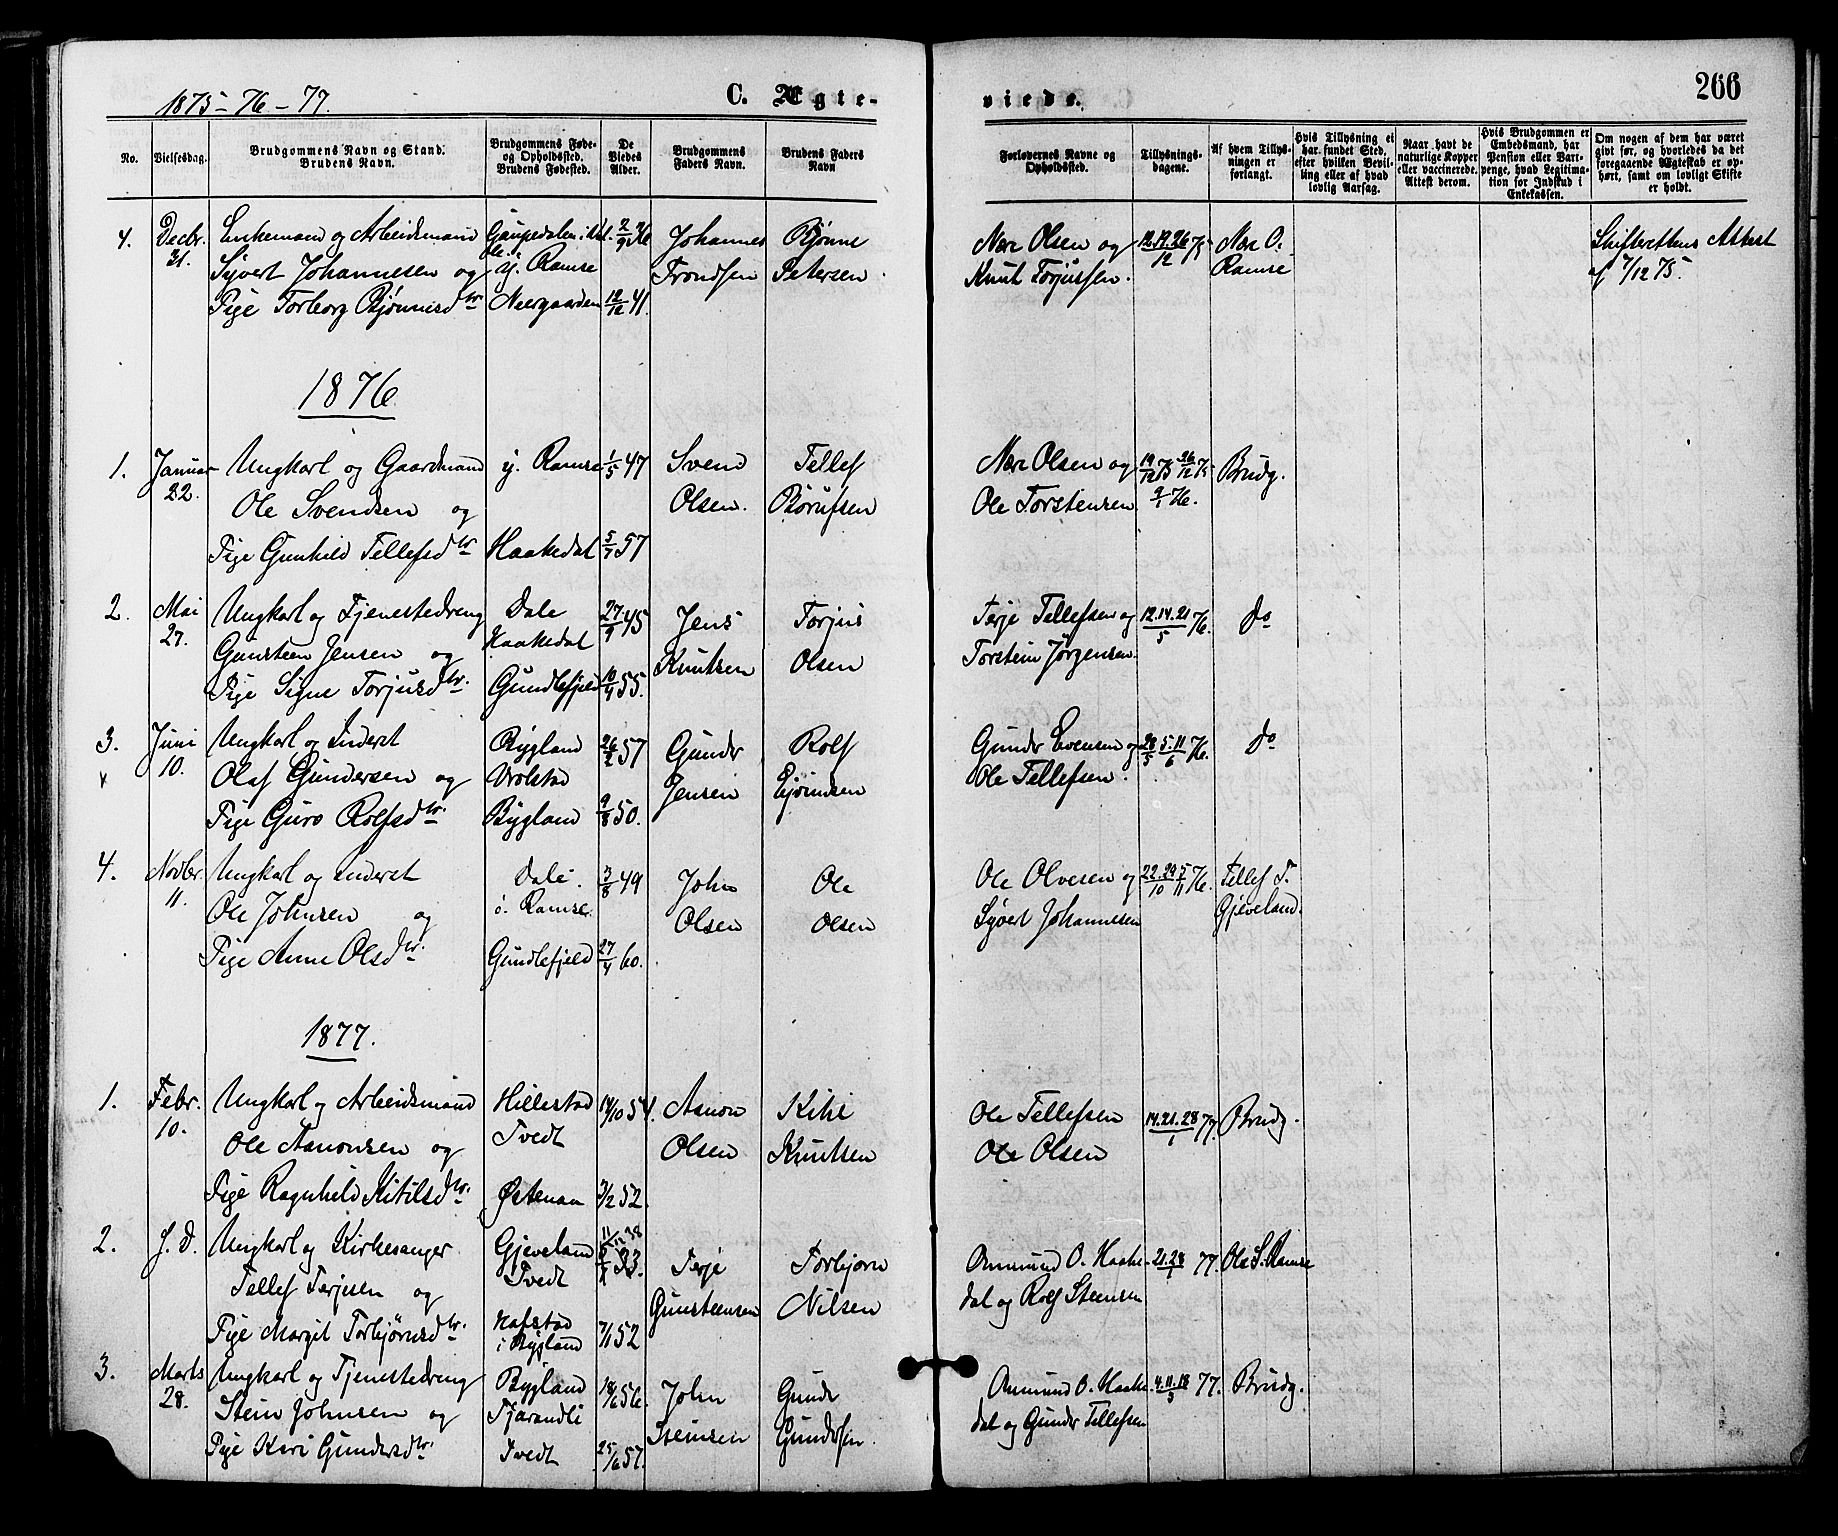 1875-76-77.
C. Ægte-
viede.
266
No.
Vielsesdag.
Brudgommens Navn og Stand.
Brudens Navn.
Brudgommens Føde-
og Opholdsted.
Brudens Fødested.
De
Viedes
Alder.
Brudgommens
Faders Navn.
Brudens Faders
Navn
Forlovernes Navne og
Opholdsted.
Tillysnings-
dagene.
Af hvem Tillys-
ningen er
forlangt.
Hvis Tillysning ei
har fundet Sted,
efter hvilken Bevil-
ling eller af hvad
lovlig Aarsag.
Naar havt de
naturlige Kopper
eller vaccinerede.
Attest derom.
Hvis Brudgommen er
Embedsmand, har
Pension eller Vart-
penge, hvad Legitima-
tion for Indskud i
Enkekassen.
Om nogen af dem har været
gift før, og hvorledes da det
foregaaende Ægteskab er op-
hørt, samt om lovligt Skifte
er holdt.
4. Decbr. 31.
Enkemand og Arbeidsmand
Syvert Johannesen og
Pige Torborg Bjønnesdtr
Gaupedalen i
y. Ramse
Neergaarden
2/9 26
12/12 41.
Johannes
Trondsen
Bjønne
Petersen
Næri Olsen og
Knut Torjussen.
12.19.26/12 75
Næri O.
Ramse
Skifterettens Attest
af 7/12 75.
1876
1. Januar 22.
Ungkarl og Gaardmand
Ole Svendsen og
Pige Gunhild Tellefsdtr
y. Ramse
Haakedal
1/5 47
5/7 57
Svend
Olsen.
Tellef
Børufsen
Næri Olsen og
Ole Torstensen
19/12 75 26/12 75
9/1 76.
Brudg.
2. Mai 27.
Ungkarl og Tjenestedreng
Gunsteen Jensen og
Pige Signe Torjusdtr.
Dale
Haakedal
Gundlefjeld
27/9 45
10/4 55.
Jens
Knutsen
Torjus
Olsen
Terje Tellefsen og
Torstein Jørgensen.
12.14.21/5 76.
Do
3. x Juni 10.
Ungkarl og Inderst
Olaf Gundersen og
Pige Guro Rolfsdtr.
Bygland
Vrolstad
Bygland
26/2 57
9/8 50.
Gunder
Jensen
Rolf
Ejvindsen
Gunder Evensen og
Ole Tellefsen.
28/5 5.11/6 76.
Do
4. Novbr. 11.
Ungkarl og Inderst
Ole Johnsen og
Pige Anne Olsdtr.
Dale.
ø. Ramse.
Gundlefjeld
3/8 49
27/4 60.
John
Olsen
Ole
Olsen
Ole Olvesen og
Syvert Johannesen
22.29/10 5/11 76.
Tellef T.
Gjeveland.
1877.
1. Febr. 10.
Ungkarl og Arbeidsmand
Ole Aanonsen og
Pige Ragnhild Kitilsdtr.
Hillestad
Tvedt
Østenaa
14/10 54.
3/2 52.
Aanon
Olsen
Kitil
Knutsen
Ole Tellefsen
Ole Olsen
14.21.28/1 77.
Brudg.
2. s. d.
Ungkarl og Kirkesanger
Tellef Terjesen og
Pige Margit Torbjørnsdtr.
Gjeveland
Tvedt
Hafstad
i Bygland
11/12 38
33.
7/1 52
Terje
Gunsteensen
Torbjørn
Nilsen
Ommund O. Haake-
dal og Rolf Steensen
21.28/1 77.
Ole S. Ramse
3. Marts 28.
Ungkarl og Tjenestedreng
Stein Johnsen og
Pige Kari Gundersdtr.
Bygland
Tjarandli
Tvedt
18/6 56.
25/6 57.
John
Steinsen
Gunder
Gundersen.
Ommund O. Haake-
dal og Gunder Tellefsen
4.11.18/3 77.
Brudg.